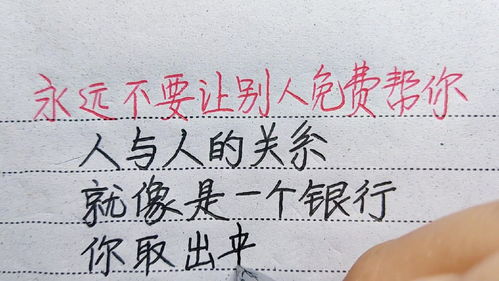 永远不要让别人免费帮你
人与人的关系
就像是一个银行
你取出